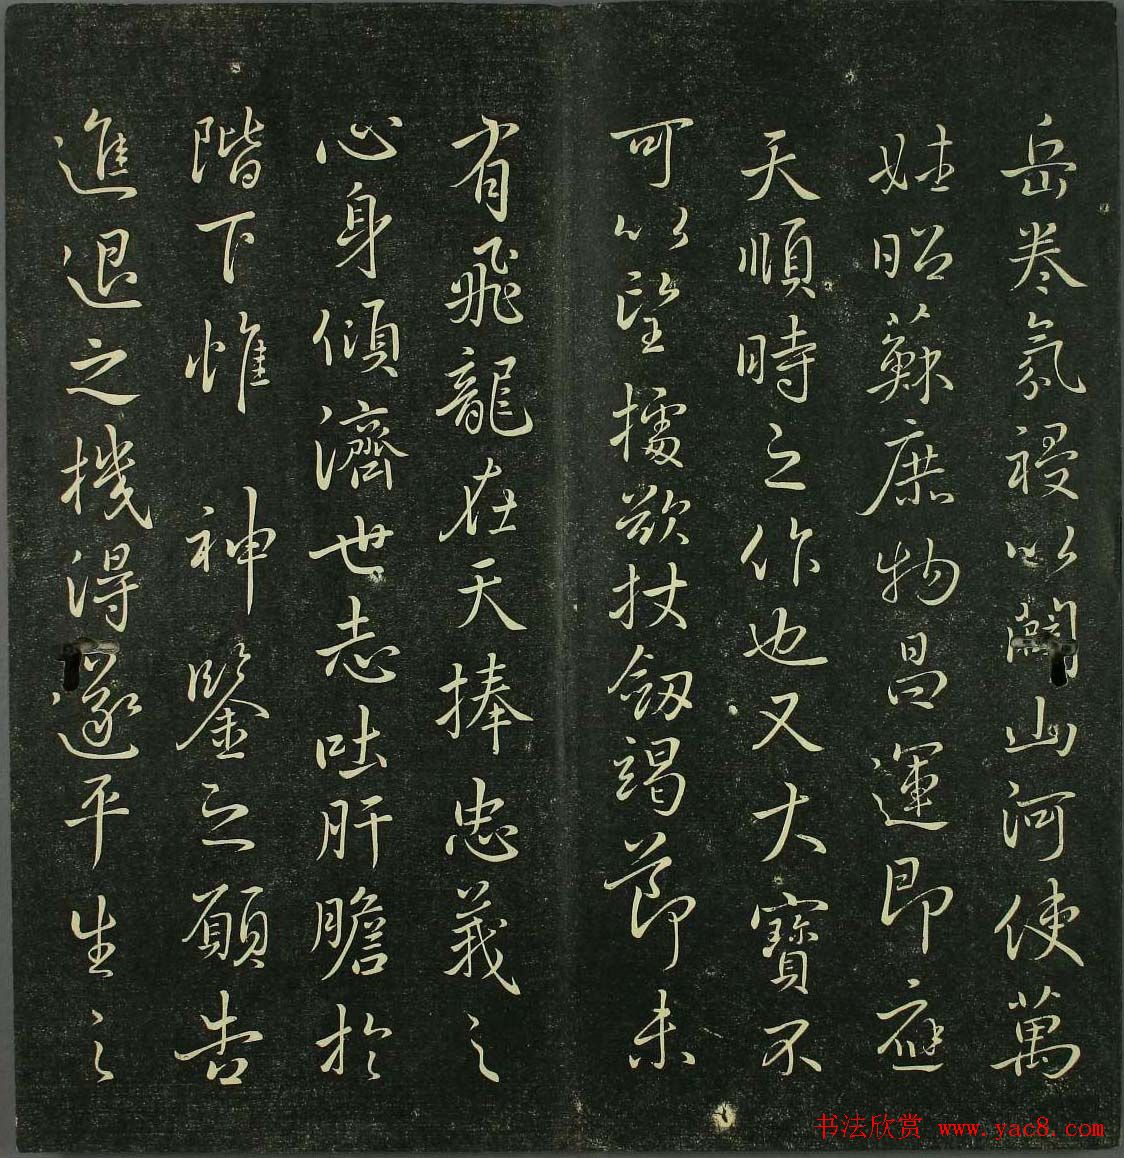 岳卷氛祲以闢山河使萬
姓昭蘇庶物昌運即應
天順時之作也又大寶不
可以望據欲杖劒竭節未
有飛龍在天捧忠義之
心身傾濟世志吐肝膽於
階下惟 神鑒之願告
進退之機得遂平生之
书法欣赏 www.yac8.com